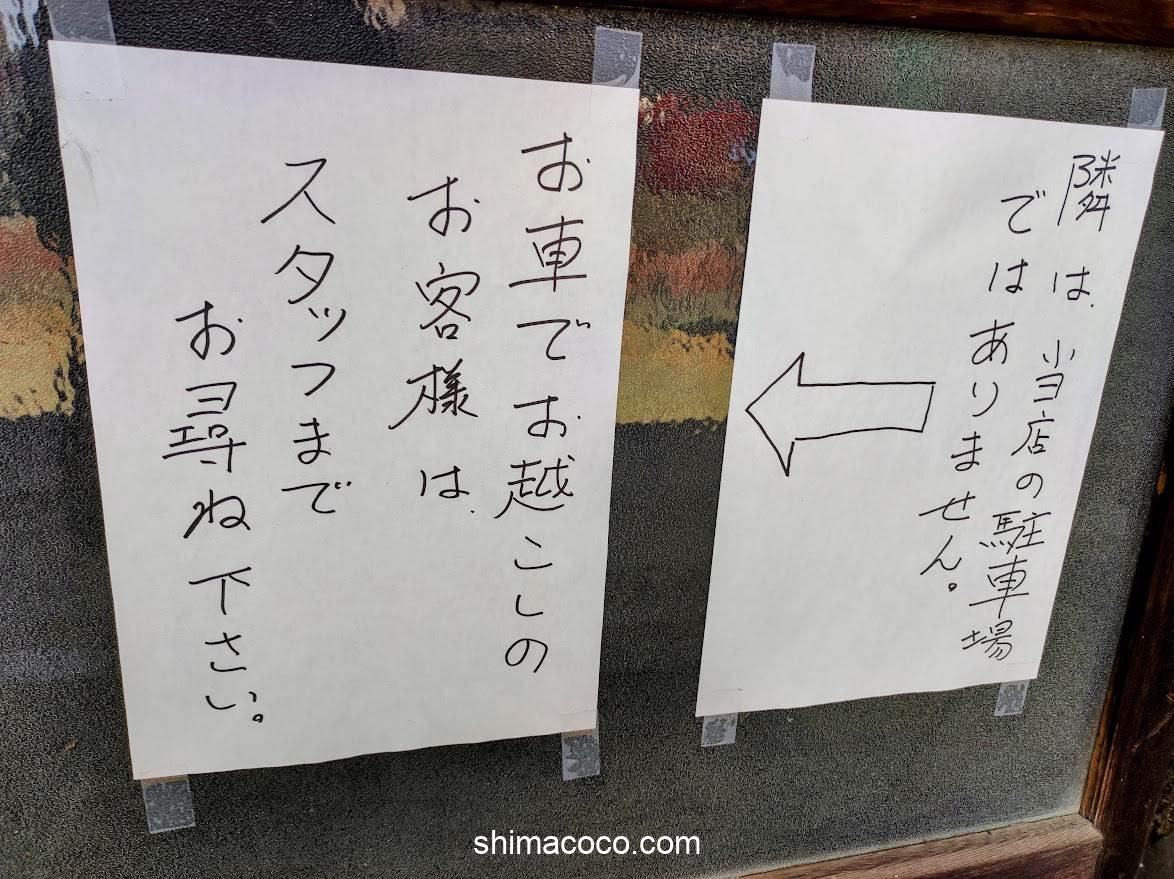 隣は、当店の駐車場
ではありません。
お車でお越しの
お客様は、
スタッフまで
お尋ね下さい。
shimacoco.com